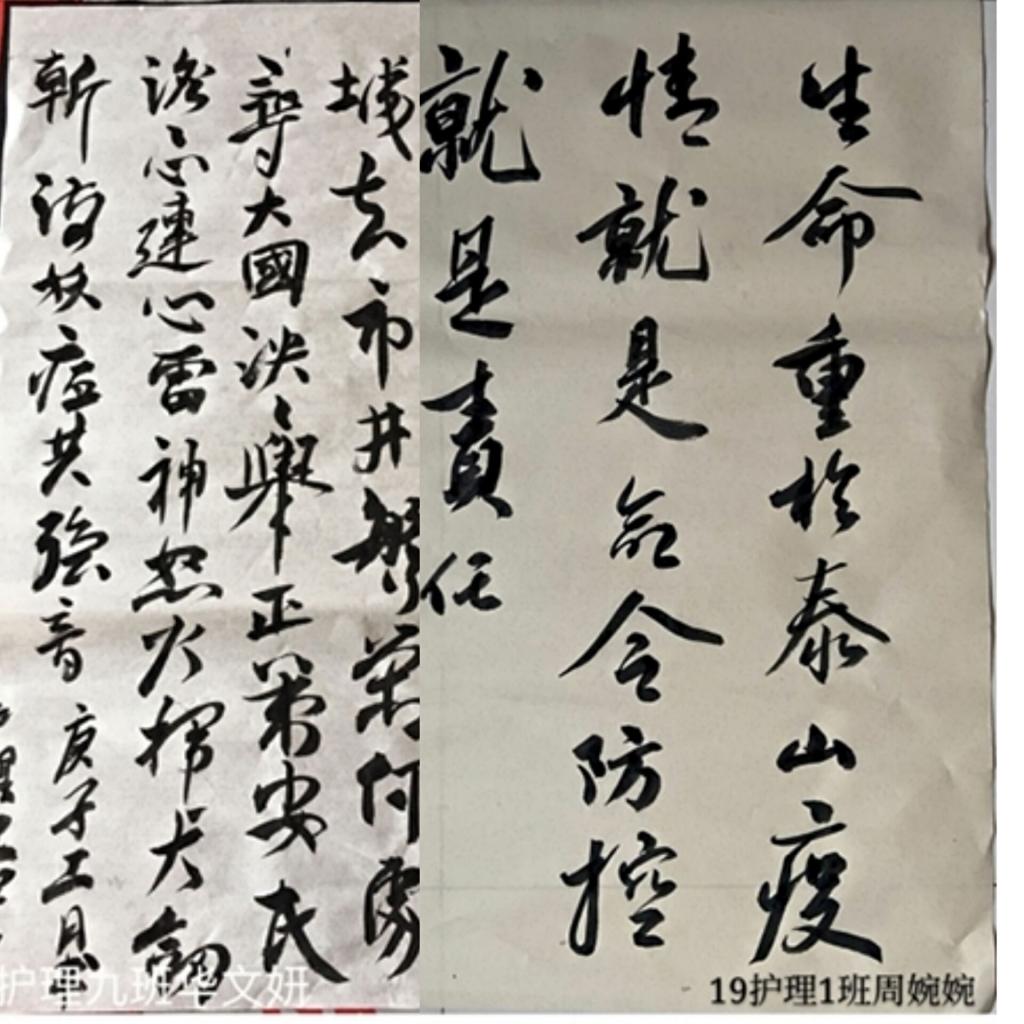 生命重於泰山疫
情就是命令防控
就是責任
19护理1班周婉婉
城去市井繁何處
尋大國泱々舉正策安民
心連心雷神怒火揮大劍
斬共強音庚子
护理九班华文妍